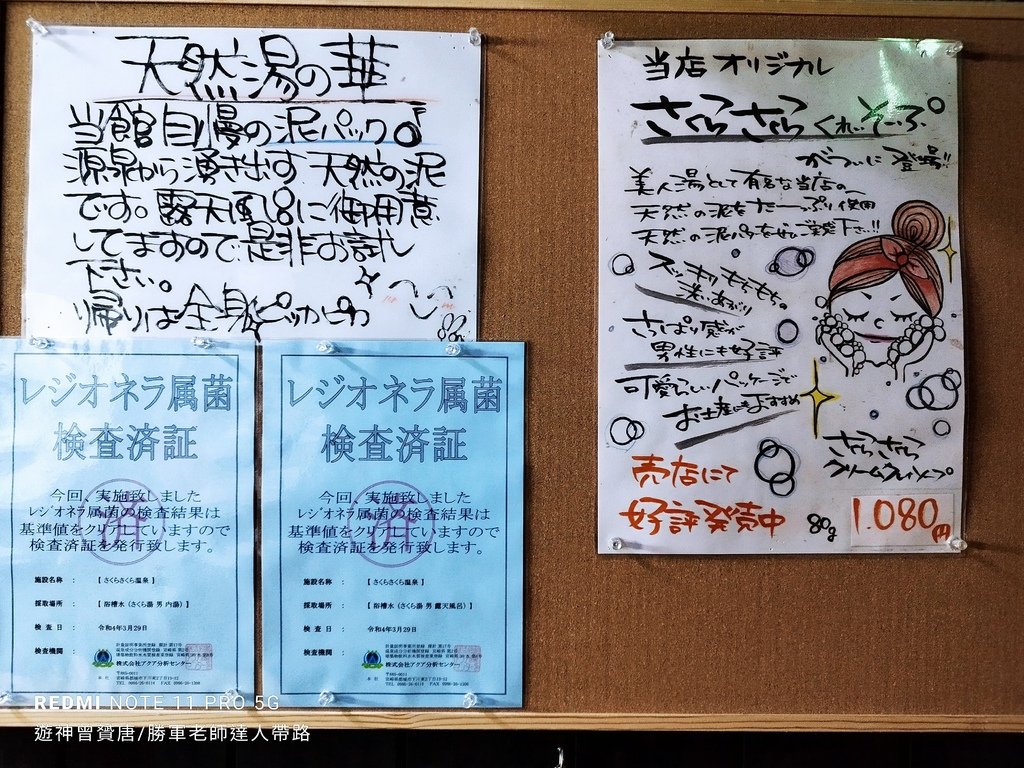 天然湯の華
当館自慢の泥パック♪
源泉から湧き出す天然の泥
です。露天風呂に御用意
してますので是非お試し
下さい。
帰りは全身ピッカピカ
レジオネラ属菌
検査済証
今回、実施致しました
レジオネラ属菌の検査結果は
基準値をクリアしていますので
検査済証を発行致します。
済
施設名称 : 【 さくらさくら温泉 】
採取場所 : 【 浴槽水 (さくら湯 男 内湯) 】
検査日 : 令和4年3月29日
検査機関 :
株式会社アクア分析センター
レジオネラ属菌
検査済証
今回、実施致しました
レジオネラ属菌の検査結果は
基準値をクリアしていますので
検査済証を発行致します。
済
施設名称 : 【 さくらさくら温泉 】
採取場所 : 【 浴槽水 (さくら湯 男 露天風呂) 】
検査日 : 令和4年3月29日
検査機関 :
株式会社アクア分析センター
当店オリジナル
さくらさくらくれぃそーぷ
がついに登場!!
美人湯として有名な当店の
天然の泥をたーっぷり使用
天然の泥パックをぜひご堪能下さい!!
スッキリもちもち。
洗いあがり
さっぱり感が
男性にも好評
可愛らしいパッケージで
お土産にもおすすめ
さくらさくら
クリームクレイソープ
売店にて
好評発売中
80g
1.080円
REDMI NOTE 11 PRO 5G
遊神曾贇唐/勝軍老師達人帶路